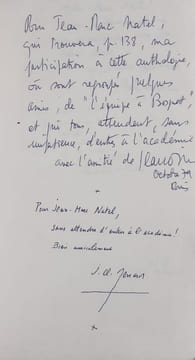 Pour Jean-Marc Natel,
qui trouvera, p. 138, ma
participation à cette anthologie,
où sont regroupés quelques
amis, de "l'équipe à
et qui tous, attendent, sans
impatience, d'entrer à l'académie
avec l'amitié de
Octobre 79
Paris
*
Pour Jean-Marc Natel,
sans attendre d'entrer à l'académie!
Bien amicalement
J. Cl.
*